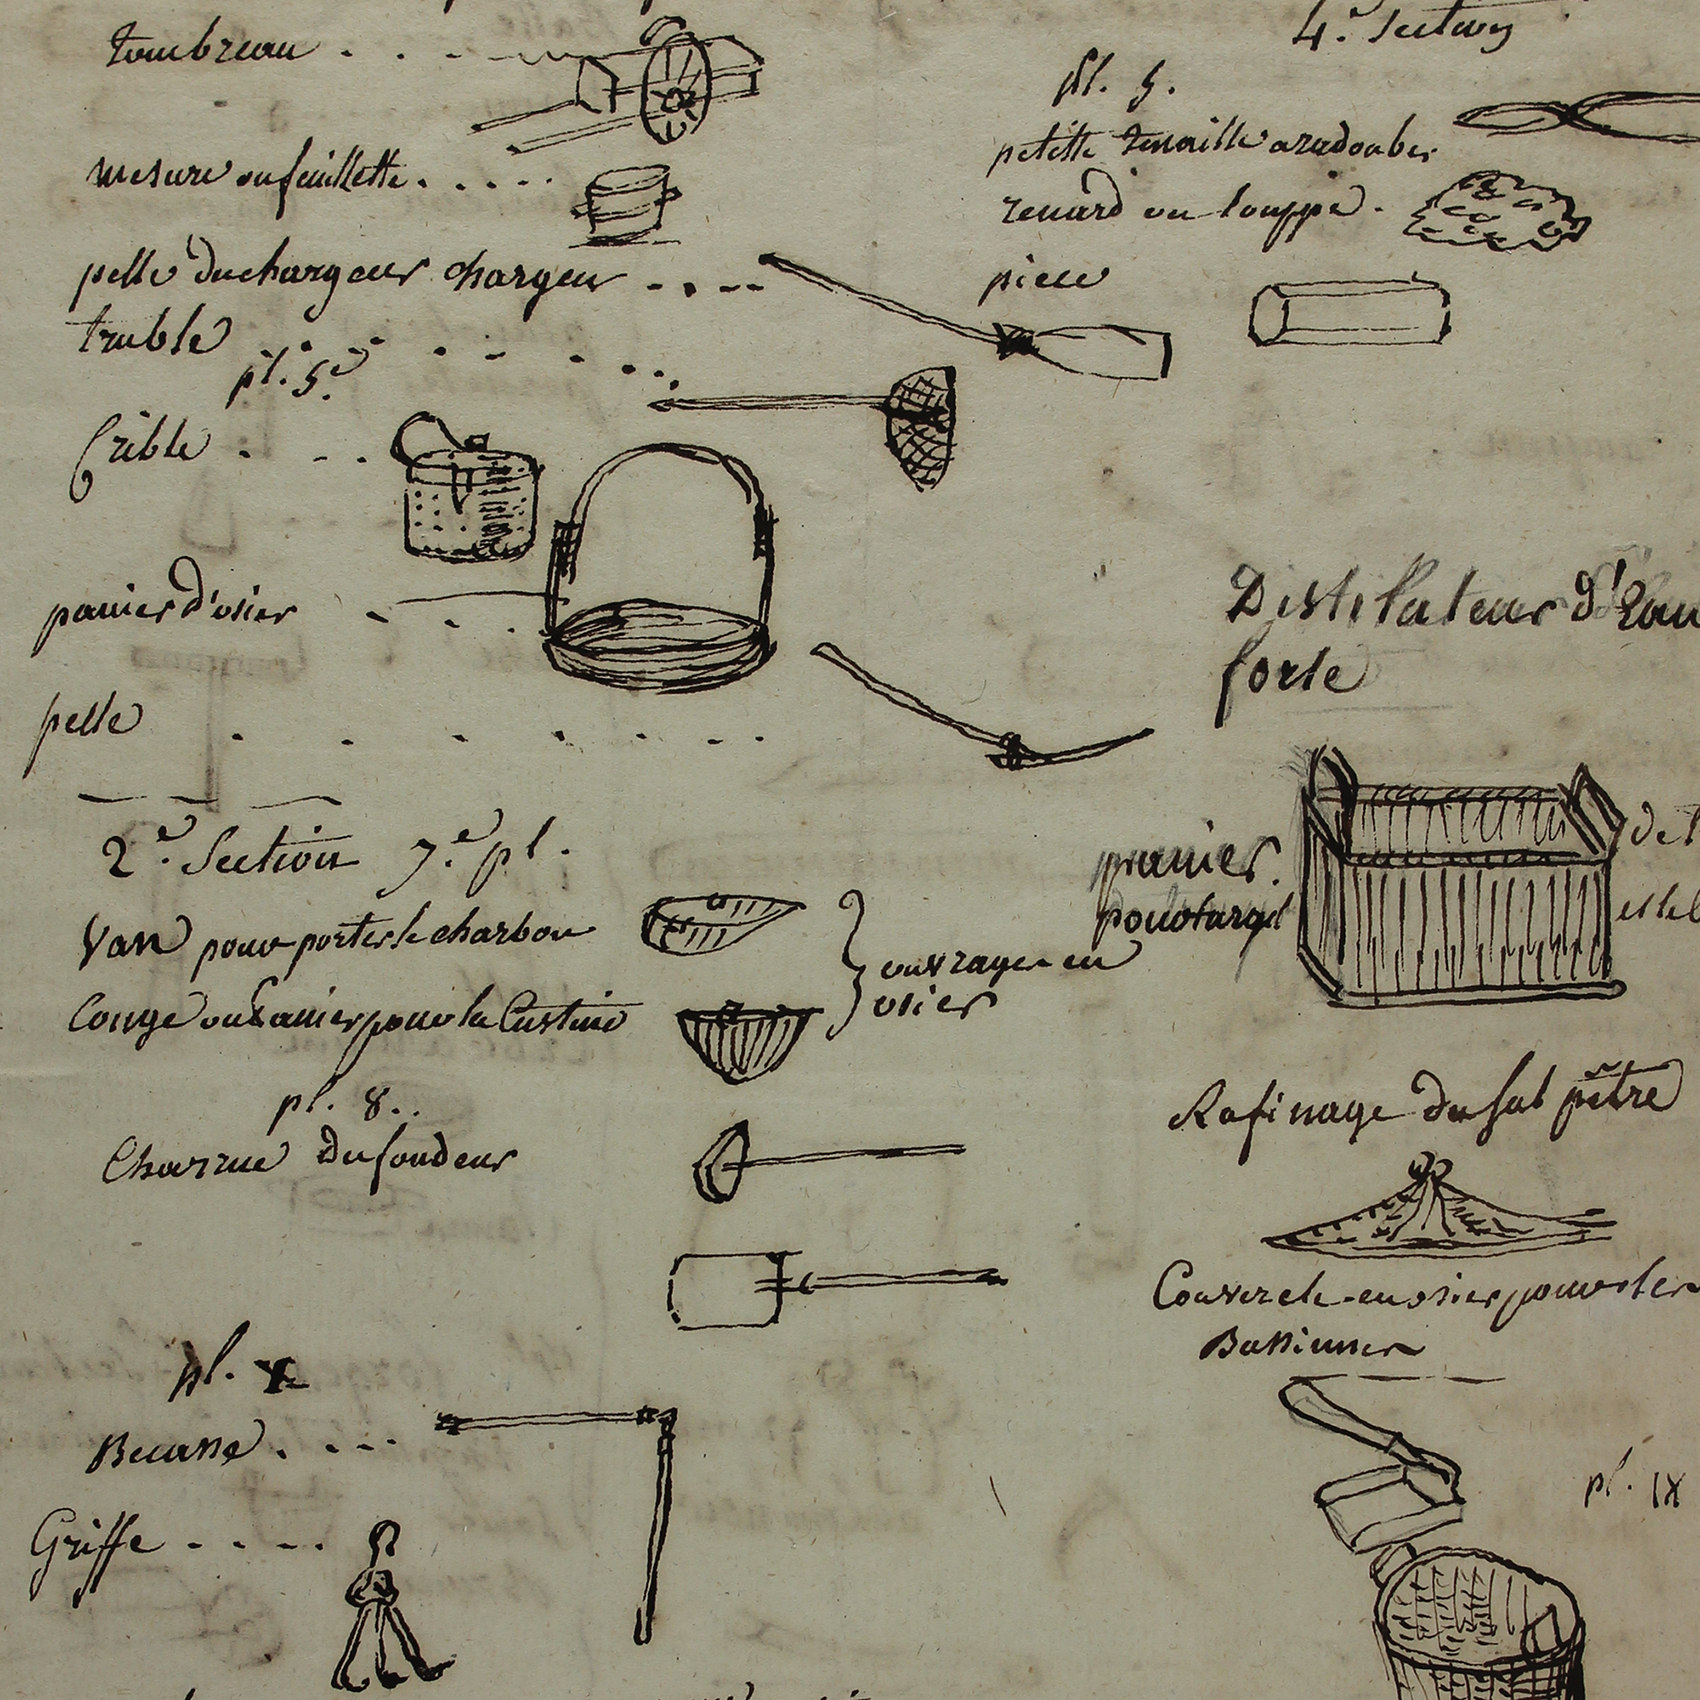 tombreau
mesure ou feuillette
pelle du chargeur chargeur
truble
pl. 5e
Crible
panier d'osier
pelle
2e. Section 7e. pl.
Van pour porter le charbon
Conge ou panier pour la Castine
ouvrages en
osier
pl. 8.
Charrue du fondeur
pl.
Becasse
Griffe
4e. Section
pl. 5.
petitte tenaille a radouber
renard ou louppe
piece
Distilateur d'Eau
forte
panier
pour
Rafinage du sal pêtre
Couvercle en osier pour les
Bassinnes
pl. IX